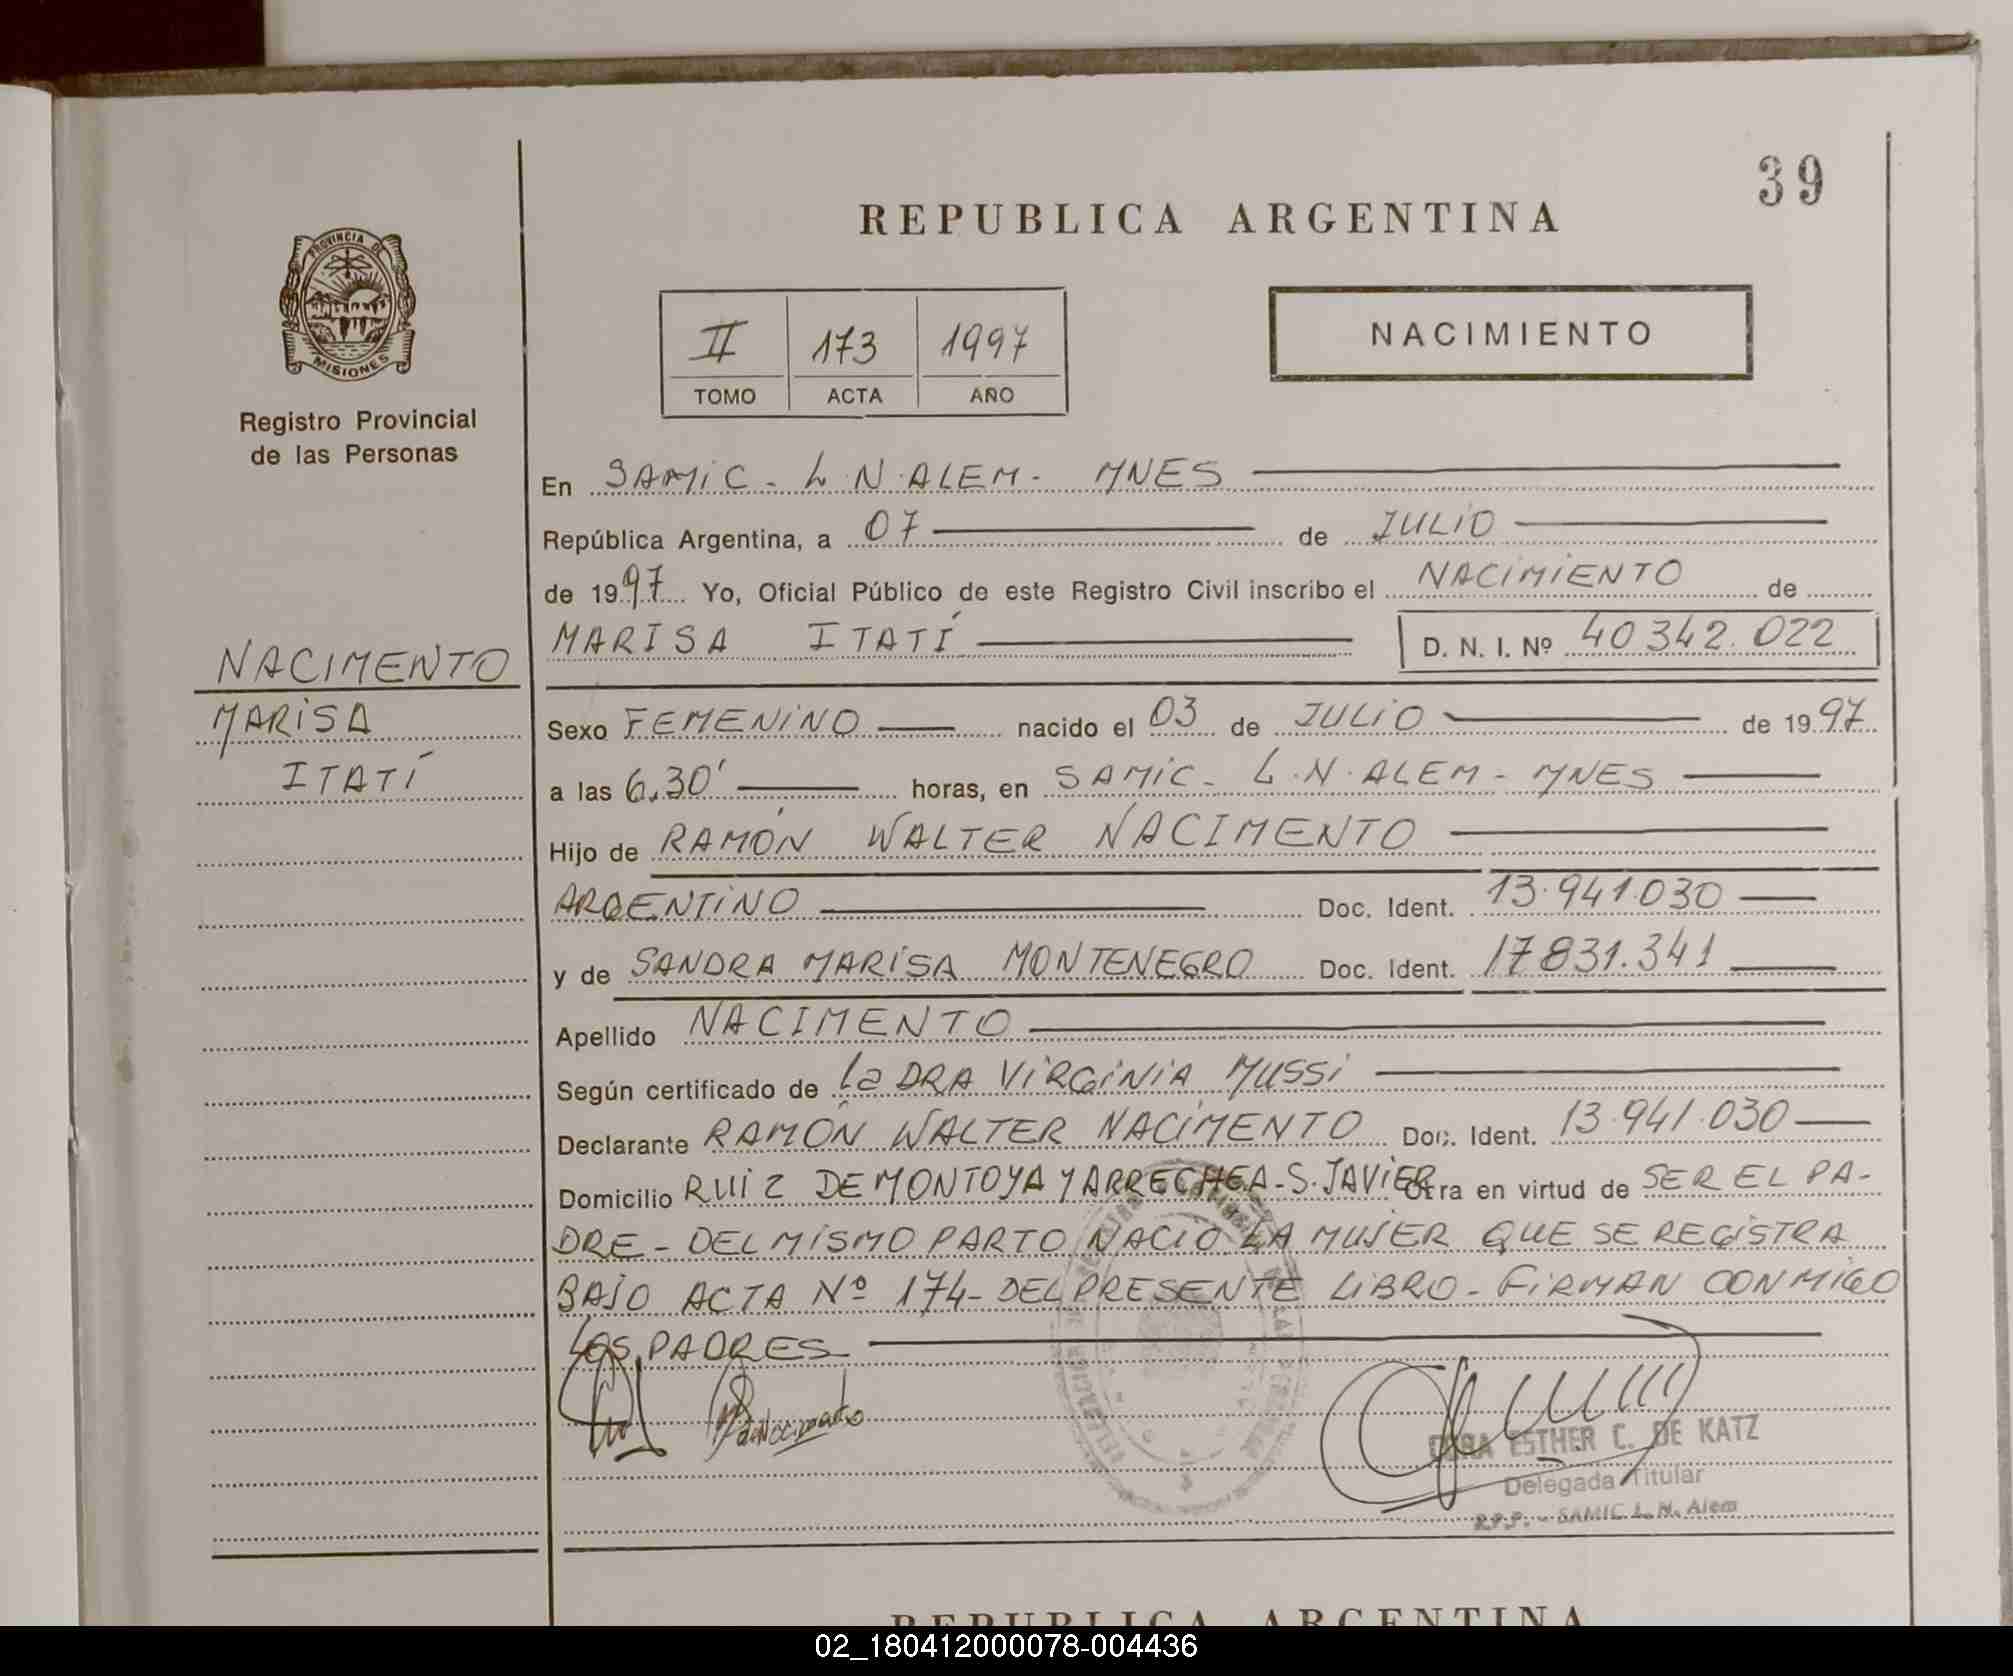 39
REPUBLICA ARGENTINA
PROVINCIA DE
MISIONES
Registro Provincial
de las Personas
II 173 1997
TOMO ACTA AÑO
NACIMIENTO
NACIMENTO
MARISA
ITATÍ
En SAMIC - L.N.ALEM - MNES
República Argentina, a 07 de JULIO
de 1997 Yo, Oficial Público de este Registro Civil inscribo el NACIMIENTO de
MARISA ITATÍ D. N. I. Nº 40342.022
Sexo FEMENINO nacido el 03 de JULIO de 1997
a las 6.30' horas, en SAMIC - L.N.ALEM - MNES
Hijo de RAMÓN WALTER NACIMENTO
ARGENTINO Doc. Ident. 13.941.030
y de SANDRA MARISA MONTENEGRO Doc. Ident. 17831.341
Apellido NACIMENTO
Según certificado de la DRA VIRGINIA MUSSI
Declarante RAMÓN WALTER NACIMENTO Doc. Ident. 13.941.030
Domicilio RUIZ DE MONTOYA Y ARRECHEA - S. JAVIER Otra en virtud de SER EL PA-
DRE - DEL MISMO PARTO NACIO LA MUJER QUE SE REGISTRA
BAJO ACTA Nº 174 - DEL PRESENTE LIBRO - FIRMAN CONMIGO
LOS PADRES
ESTHER C. DE KATZ
Delegada Titular
R.P.P. - SAMIC L. N. Alem
REPUBLICA ARGENTINA
02_180412000078-004436